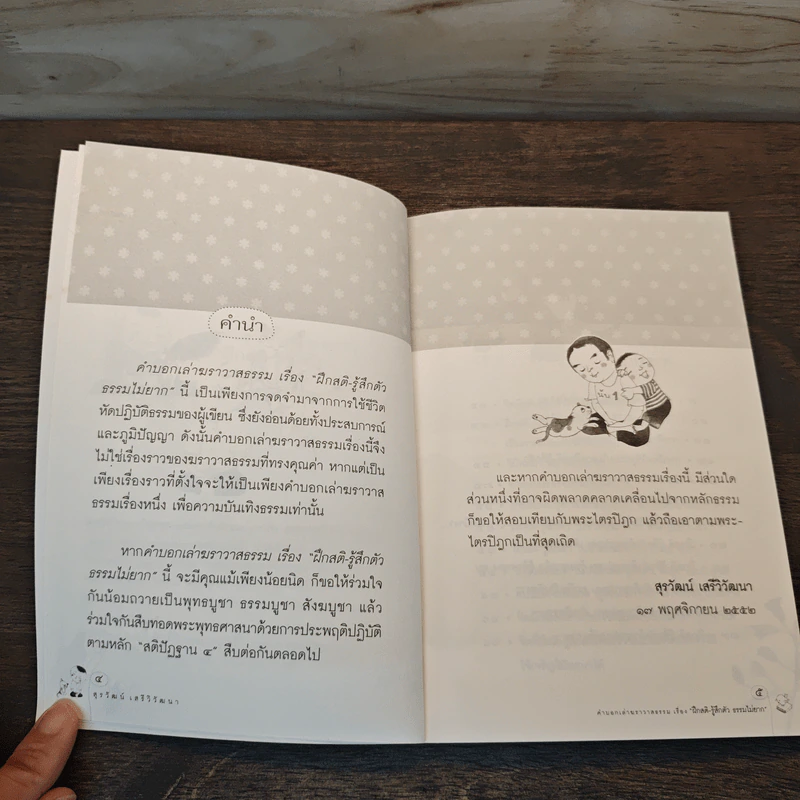 คำนำ
คำบอกเล่าฆราวาสธรรม เรื่อง "ฝึกสติ-รู้สึกตัว
ธรรมไม่ยาก" นี้ เป็นเพียงการจดจำมาจากการใช้ชีวิต
หัดปฏิบัติธรรมของผู้เขียน ซึ่งยังอ่อนด้อยทั้งประสบการณ์
และภูมิปัญญา ดังนั้นคำบอกเล่าฆราวาสธรรมเรื่องนี้จึง
ไม่ใช่เรื่องราวของฆราวาสธรรมที่ทรงคุณค่า หากแต่เป็น
เพียงเรื่องราวที่ตั้งใจจะให้เป็นเพียงคำบอกเล่าฆราวาส
ธรรมเรื่องหนึ่ง เพื่อความบันเทิงธรรมเท่านั้น
หากคำบอกเล่าฆราวาสธรรม เรื่อง "ฝึกสติ-รู้สึกตัว
ธรรมไม่ยาก" นี้ จะมีคุณแม้เพียงน้อยนิด ก็ขอให้ร่วมใจ
กันน้อมถวายเป็นพุทธบูชา ธรรมบูชา สังฆบูชา แล้ว
ร่วมใจกันสืบทอดพระพุทธศาสนาด้วยการประพฤติปฏิบัติ
ตามหลัก "สติปัฏฐาน ๔" สืบต่อกันตลอดไป
๔
สุรวัฒน์ เสรีวิวัฒนา
นัน 1
และหากคำบอกเล่าฆราวาสธรรมเรื่องนี้ มีส่วนใด
ส่วนหนึ่งที่อาจผิดพลาดคลาดเคลื่อนไปจากหลักธรรม
ก็ขอให้สอบเทียบกับพระไตรปิฎก แล้วถือเอาตามพระ-
ไตรปิฎกเป็นที่สุดเถิด
สุรวัฒน์ เสรีวิวัฒนา
๑๗ พฤศจิกายน ๒๕๕๒
๕
คำบอกเล่าฆราวาสธรรม เรื่อง "ฝึกสติ-รู้สึกตัว ธรรมไม่ยาก"